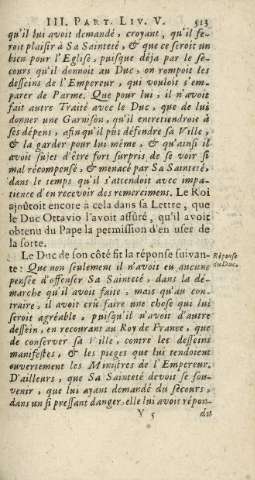 III. PART. LIV. V. 513
qu'il lui avoit demandé, croyant, qu'il fe-
roit plaisir à Sa Sainteté, & que ce seroit un
bien pour l'Eglise, puisque déja par le se-
cours qu'il donnoit au Duc, on rompoit les
desseins de l'Empereur, qui vouloit s'em-
parer de Parme. Que pour lui, il n'avoit
fait autre Traité avec le Duc, que de lui
donner une Garnison, qu'il entretiendroit à
ses dépens, afin qu'il pût défendre sa Ville,
& la garder pour lui même, & qu'ainsi il
avoit sujet d'être fort surpris de se voir si
mal récompensé, & menacé par Sa Sainteté,
dans le temps qu'il s'attendoit avec impa-
tience d'en recevoir des remercimens. Le Roi
ajoûtoit encore à cela dans sa Lettre, que
le Duc Ottavio l'avoit assuré, qu'il avoit
obtenu du Pape la permission d'en user de
la sorte.
Le Duc de son côté fit la réponse suivan-
te: Que non seulement il n'avoit eu aucune
pensée d'offenser Sa Sainteté, dans la dé-
marche qu'il avoit faite, mais qu'au con-
traire, il avoit crû faire une chose qui lui
seroit agréable, puisqu'il n'avoit d'autre
dessein, en recourant au Roy de France, que
de conserver sa Ville, contre les desseins
manifestes, & les pieges que lui tendoient
ouvertement les Ministres de l'Empereur.
D'ailleurs, que Sa Sainteté devoit se sou-
venir, que lui ayant demandé du secours,
dans un si pressant danger, elle lui avoit répon-
Y 5 du
Réponse
du Duc.